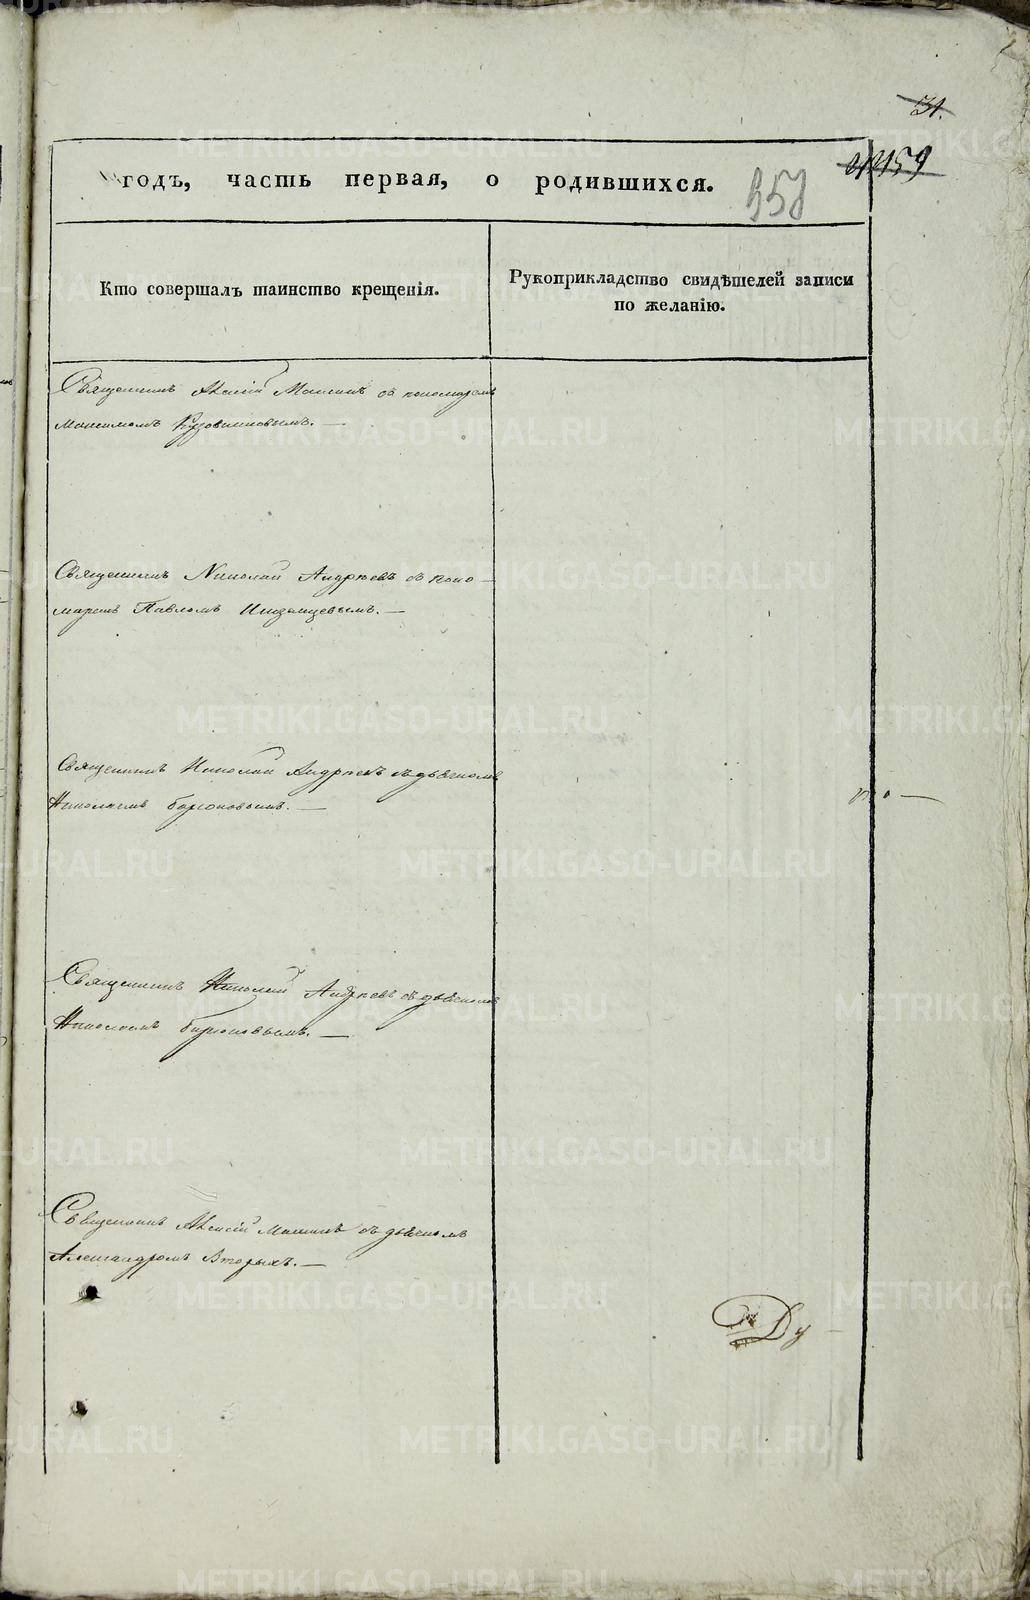 31.
159
годъ, часть первая, о родившихся.
357
Кто совершалъ таинство крещенія.
Рукоприкладство свидѣтелей записи
по желанію.
Священникъ Алексій Машинъ съ пономаремъ
Максимомъ Кузовниковымъ. —
Священникъ Николай Андреевъ съ поно-
маремъ Павломъ Инземцевымъ. —
Священникъ Николай Андреевъ съ дьячкомъ
Николаемъ Бирюковымъ. —
Священникъ Николай Андреевъ съ дьячкомъ
Николаемъ Бирюковымъ. —
Священникъ Алексій Машинъ съ дьячкомъ
Александромъ Вторыхъ. —
METRIKI.GASO-URAL.RU